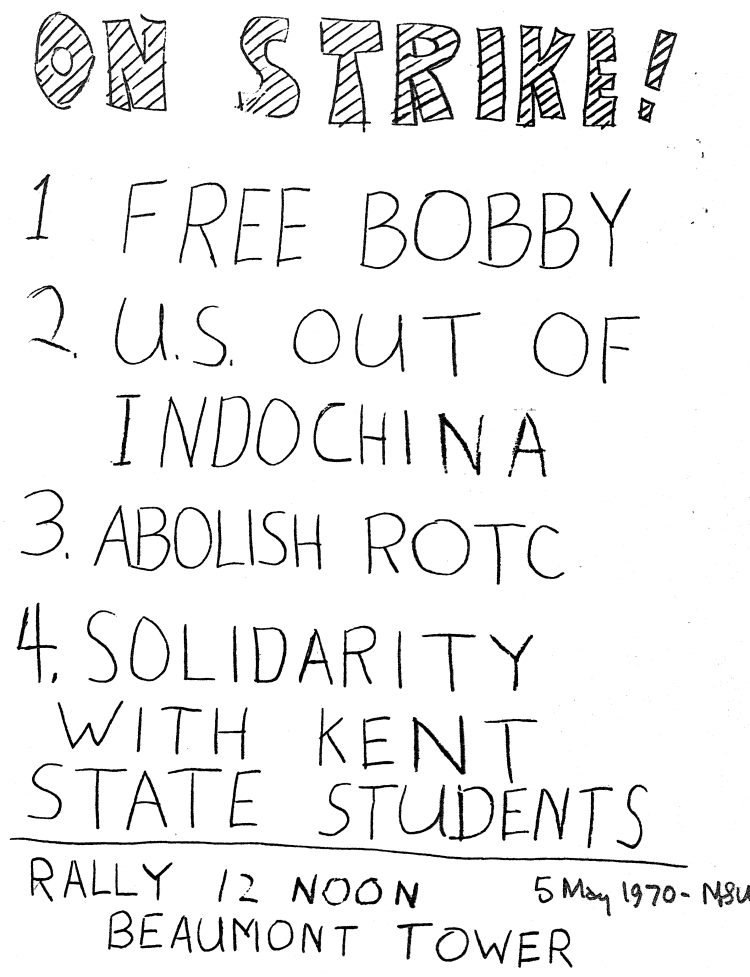 ON STRIKE!
1 FREE BOBBY
2. U.S. OUT OF
INDOCHINA
3. ABOLISH ROTC
4. SOLIDARITY
WITH KENT
STATE STUDENTS
RALLY 12 NOON 5 May 1970- MSU
BEAUMONT TOWER